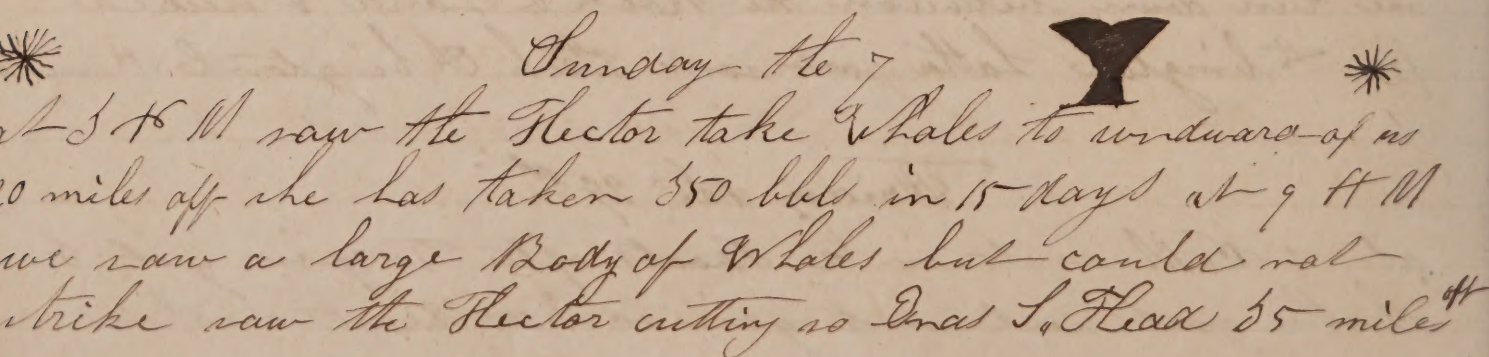 Sunday the 7
at 3 P M saw the Hector take Whales to windward of us
20 miles off she has taken 350 bbls in 15 days at 9 A M
we saw a large Body of Whales but could not
strike saw the Hector cutting so Ends S. Head 35 miles off